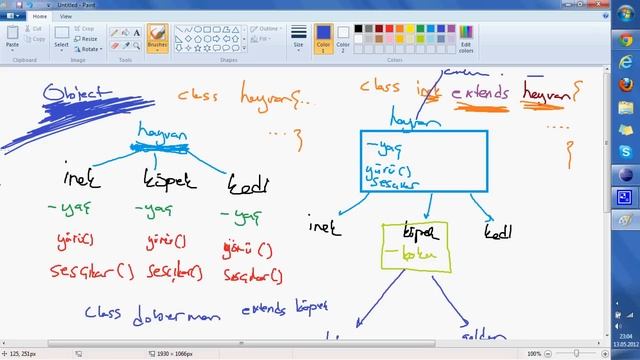 Untitled - Paint
Home View
Paste Select Brushes Shapes Size Color 1 Color 2 Edit colors
Clipboard Image Tools Shapes Colors
Object
class hayvan{...
.... }
class inek extends hayvan{
....
}
hayvan
inek köpek kedi
-yaş -yaş -yaş
yürü() yürü() yürü()
sesçıkar() sesçıkar() sesçıkar()
hayvan
-yaş
yürü()
sesçıkar
inek köpek kedi
-koku
class doberman extends köpek
golden
125, 251px 1930 × 1066px 100%
23:04
13.05.2012